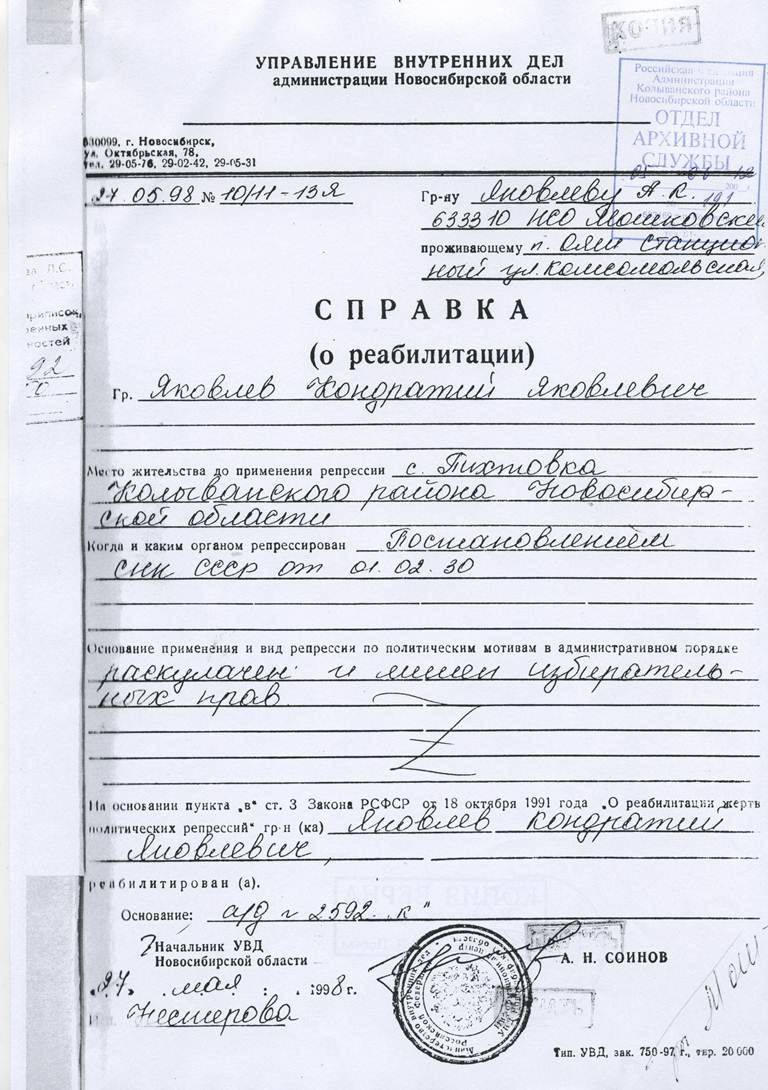 КОПИЯ
УПРАВЛЕНИЕ ВНУТРЕННИХ ДЕЛ
администрации Новосибирской области
Российская Федерация
Администрация
Колыванского района
Новосибирской области
ОТДЕЛ
АРХИВНОЙ
СЛУЖБЫ
630099, г. Новосибирск,
ул. Октябрьская, 78,
тел. 29-05-76, 29-02-42, 29-05-31
27.05.98 № 10/11-13Я
Гр-ну Яковлеву А.К.
191
633310 НСО Мошковский
проживающему п. Ояш станцион-
ный ул. Комсомольская,
СПРАВКА
(о реабилитации)
Гр. Яковлев Кондратий Яковлевич
Место жительства до применения репрессии с. Пихтовка
Колыванского района Новосибир-
ской области
Когда и каким органом репрессирован Постановлением
СНК СССР от 01.02.30
Основание применения и вид репрессии по политическим мотивам в административном порядке
раскулачен и лишен избиратель-
ных прав
На основании пункта „в“ ст. 3 Закона РСФСР от 18 октября 1991 года „О реабилитации жертв
политических репрессий“ гр-н (ка) Яковлев Кондратий
Яковлевич,
реабилитирован (а).
Основание: а/д № 2592 „к“
Начальник УВД
Новосибирской области
А. Н. СОИНОВ
„27“ мая 1998 г.
Исп. Нестерова
Тип. УВД, зак. 750-97 г., тир. 20 000